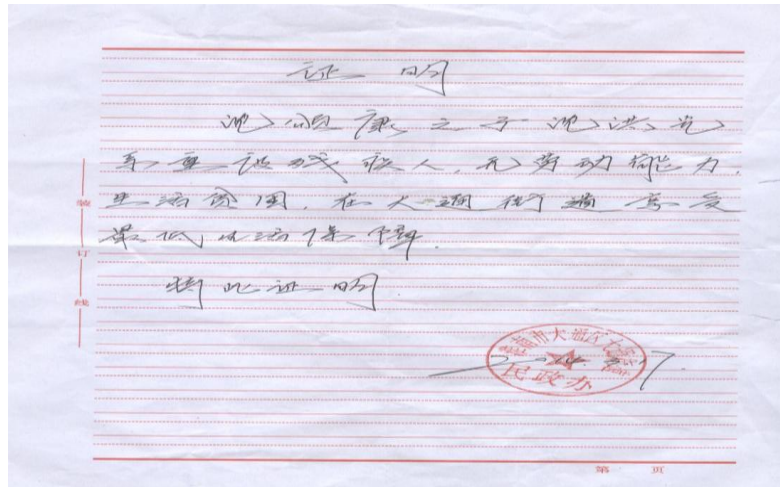 证明
沈顺康之子沈洪光
系重该残疾人,无劳动能力,
生活贫困,在大通街道享受
最低生活保障.
特此证明.
市大通区
民政办
装
订
线
第 页